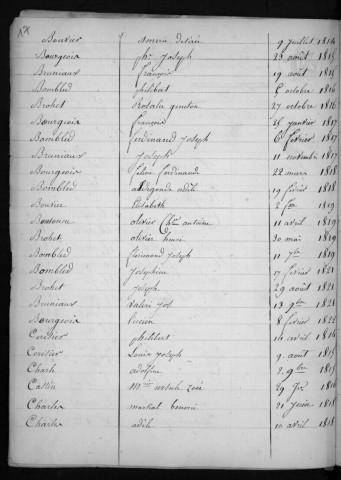 Bouvier amerin desirée 9 juillet 1814
Bourgeois ph. joseph 23 août 1815
Bruniaux françois 19 août 1815
Bomblied philibert 5 octobre 1816
Brohet Rosalie 27 octobre 1816
Bourgeois françois 25 janvier 1817
Bomblied ferdinand joseph 6 fevrier 1817
Bruniaux joseph 11 novembre 1817
Bourgeois ferdinand 22 mars 1818
Bomblied adèle 19 fevrier 1818
Bouvier Elisabeth 2 1819
olivier antoine 11 avril 1819
Brohet olivier henri 30 mai 1819
Bomblied florimond joseph 11 7bre 1819
Bomblied josephine 17 fevrier 1821
Brohet joseph 29 août 1821
Bruniaux Valeri jos 13 9bre 1821
Bourgeois lucien 8 fevrier 1822
Corilier philibert 10 avril 1814
Corilier Louis joseph 9 août 1815
Charles adolphe 2 9bre 1815
Mie ursule zoé 29 1816
Charles martial benoni 21 juin 1818
Charles adèle 10 avril 1818